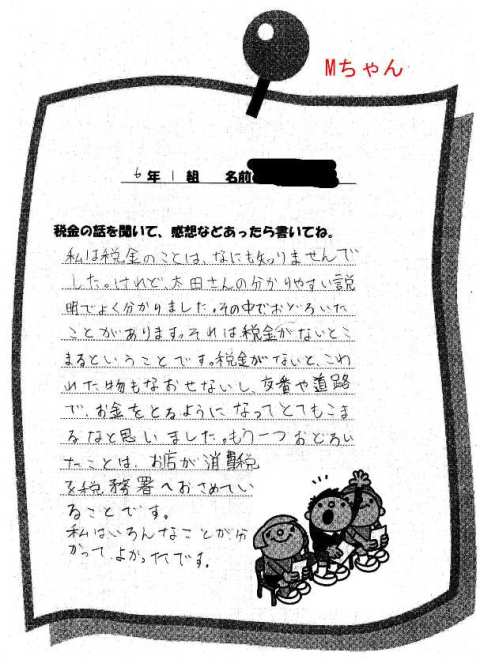 Mちゃん
6年1組 名前
税金の話を聞いて、感想などあったら書いてね。
私は税金のことは、なにも知りませんで
した。けれど、太田さんの分かりやすい説
明でよく分かりました。その中でおどろいた
ことがあります。それは税金がないとこ
まるということです。税金がないと、こわ
れた物もなおせないし、交番や道路
で、お金をとるようになってとてもこま
るなと思いました。もう一つおどろい
たことは、お店が消費税
を税務署へおさめてい
ることです。
私はいろんなことが分
かって、よかったです。